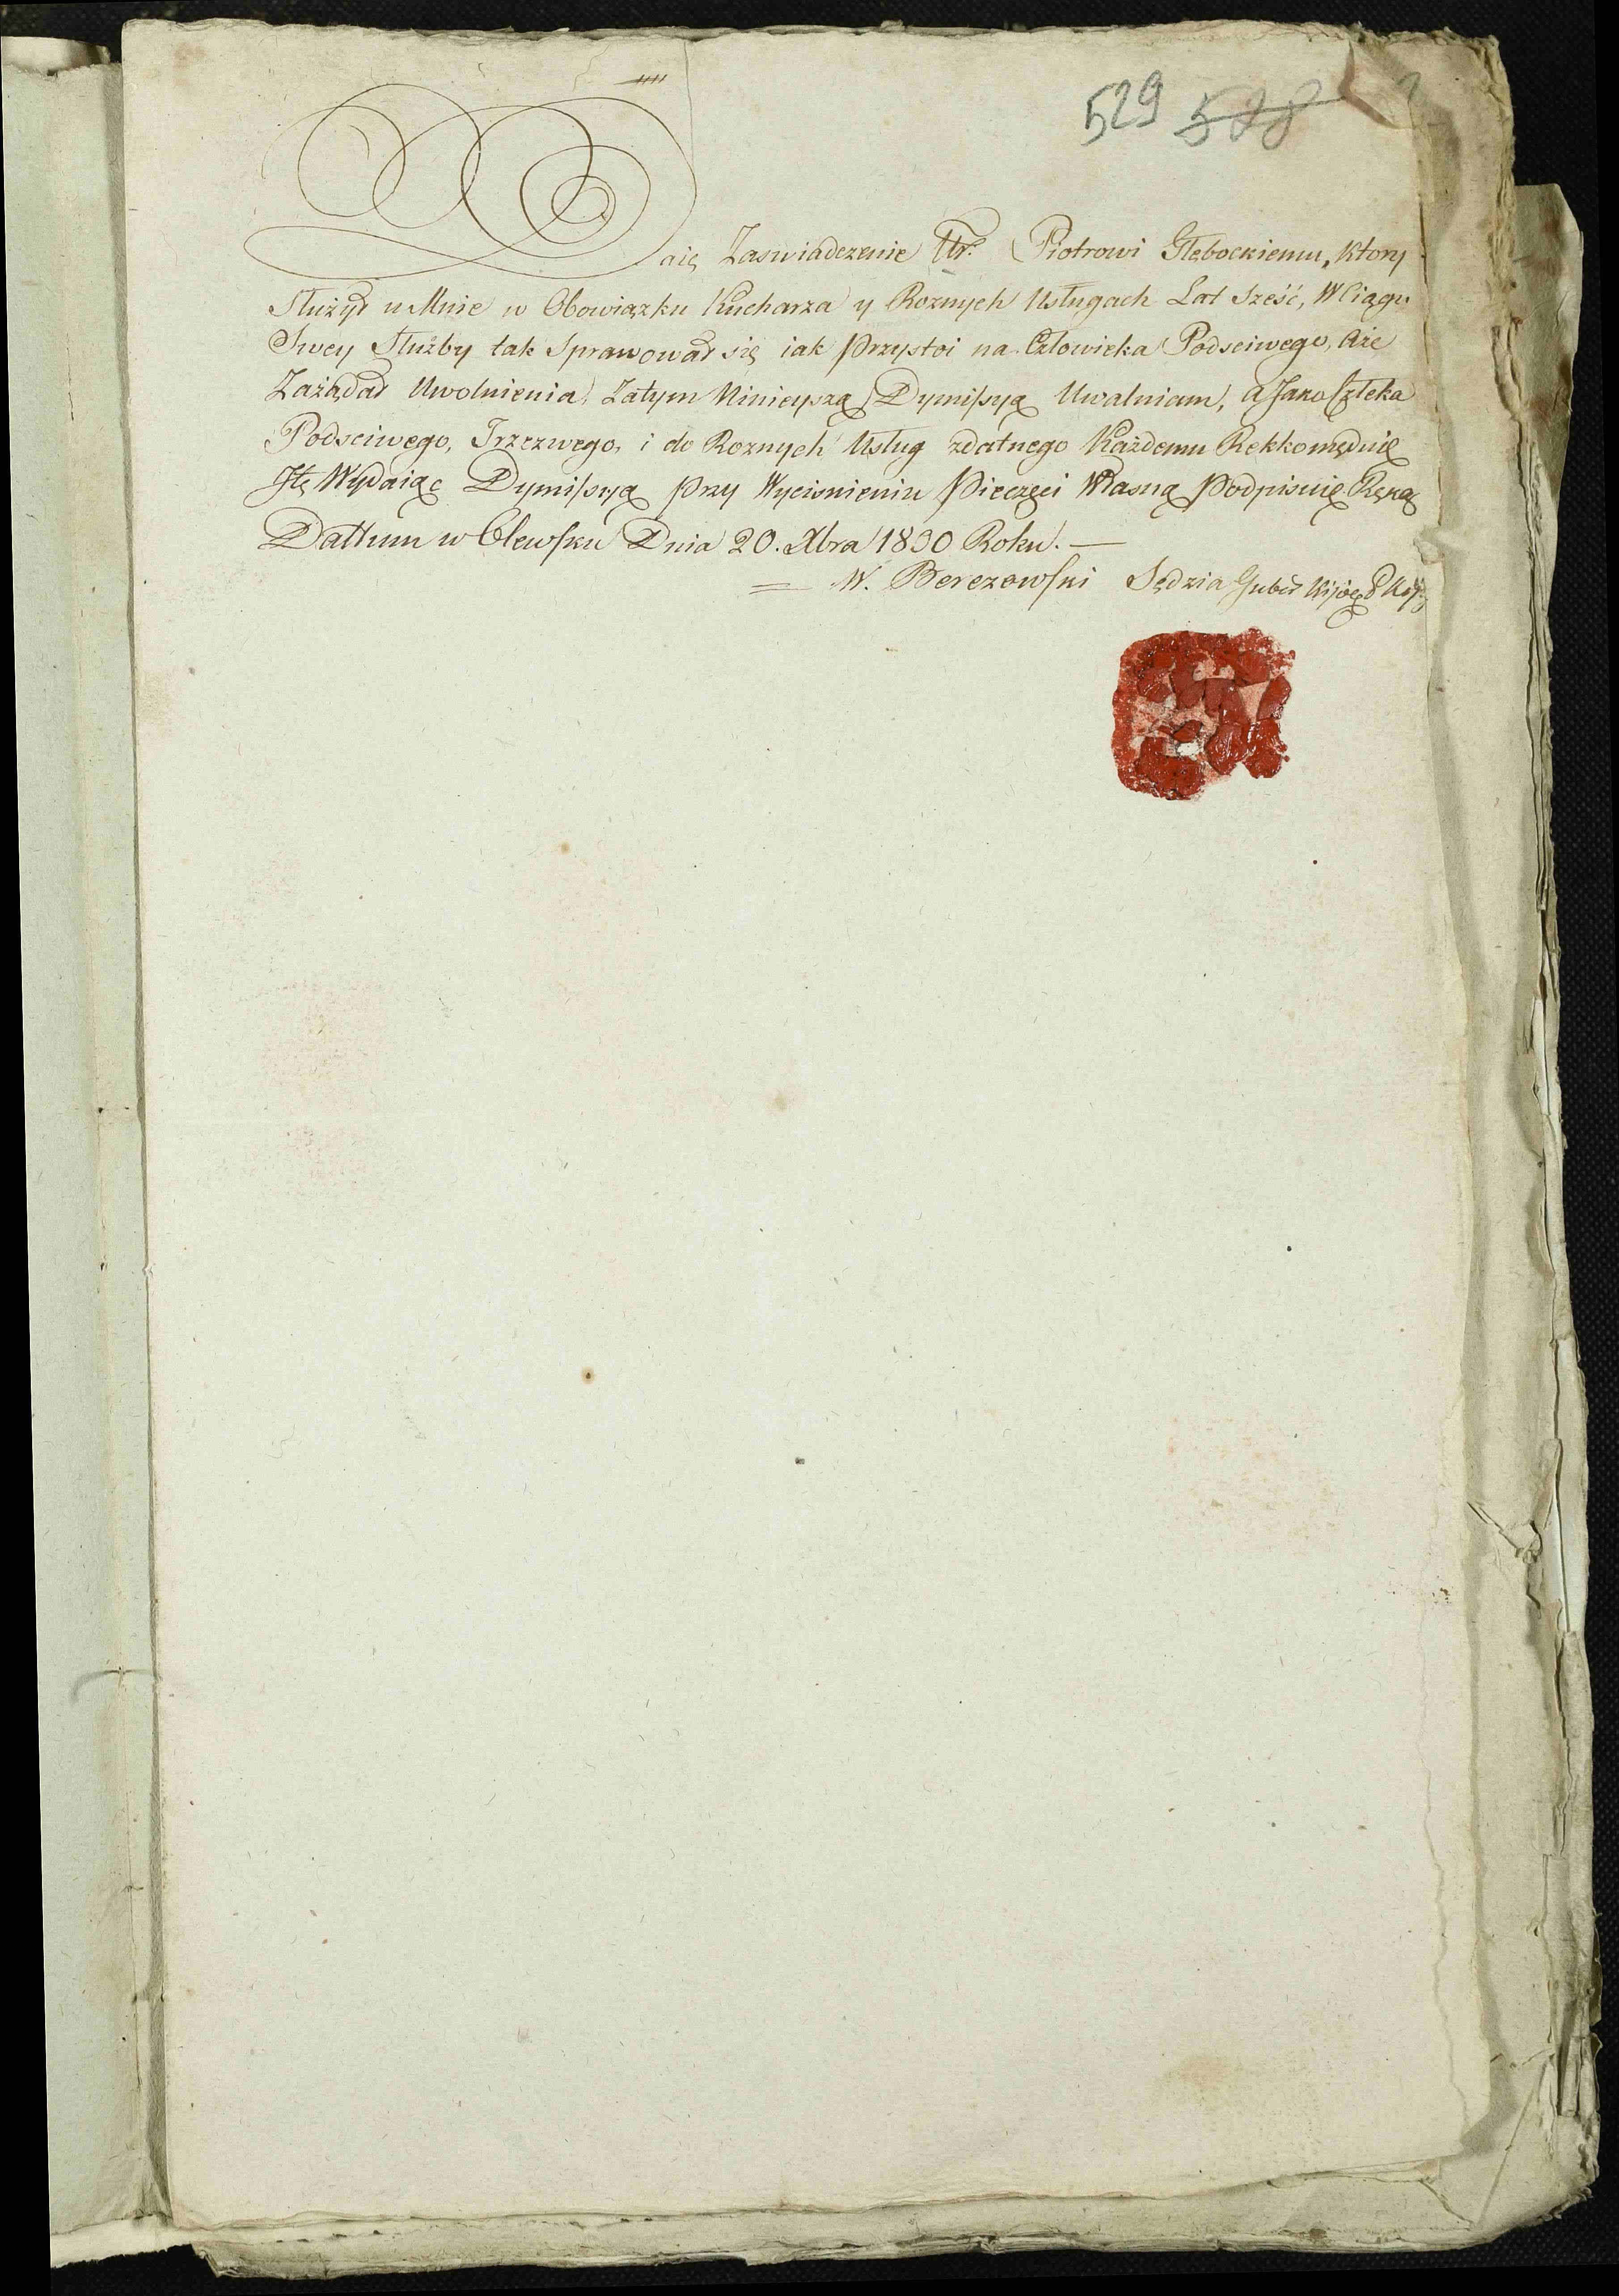 529 528
Daię Zaswiadczenie Ur: Piotrowi Głębockiemu, Ktory
Służył u Mnie w Obowiązku Kucharza y Roznych Usługach Lat Sześć, W Ciągu
Swey Służby tak Sprawował się iak Przystoi na Człowieka Podsciwego, Aże
Zażądał Uwolnienia, Zatym Ninieyszą Dymissyą Uwalniam, a Jako Człeka
Podsciwego, Trzezwego, i do Roznych Usług zdatnego Każdemu Rekkomęduię
Jtę Wydaiąc Dymissyą przy Wycisnieniu Pieczęci Własną Podpisuię Ręką
Dattum w Olewsku Dnia 20. Xbra 1830 Roku. —
= W. Berezowski Sędzia Guber